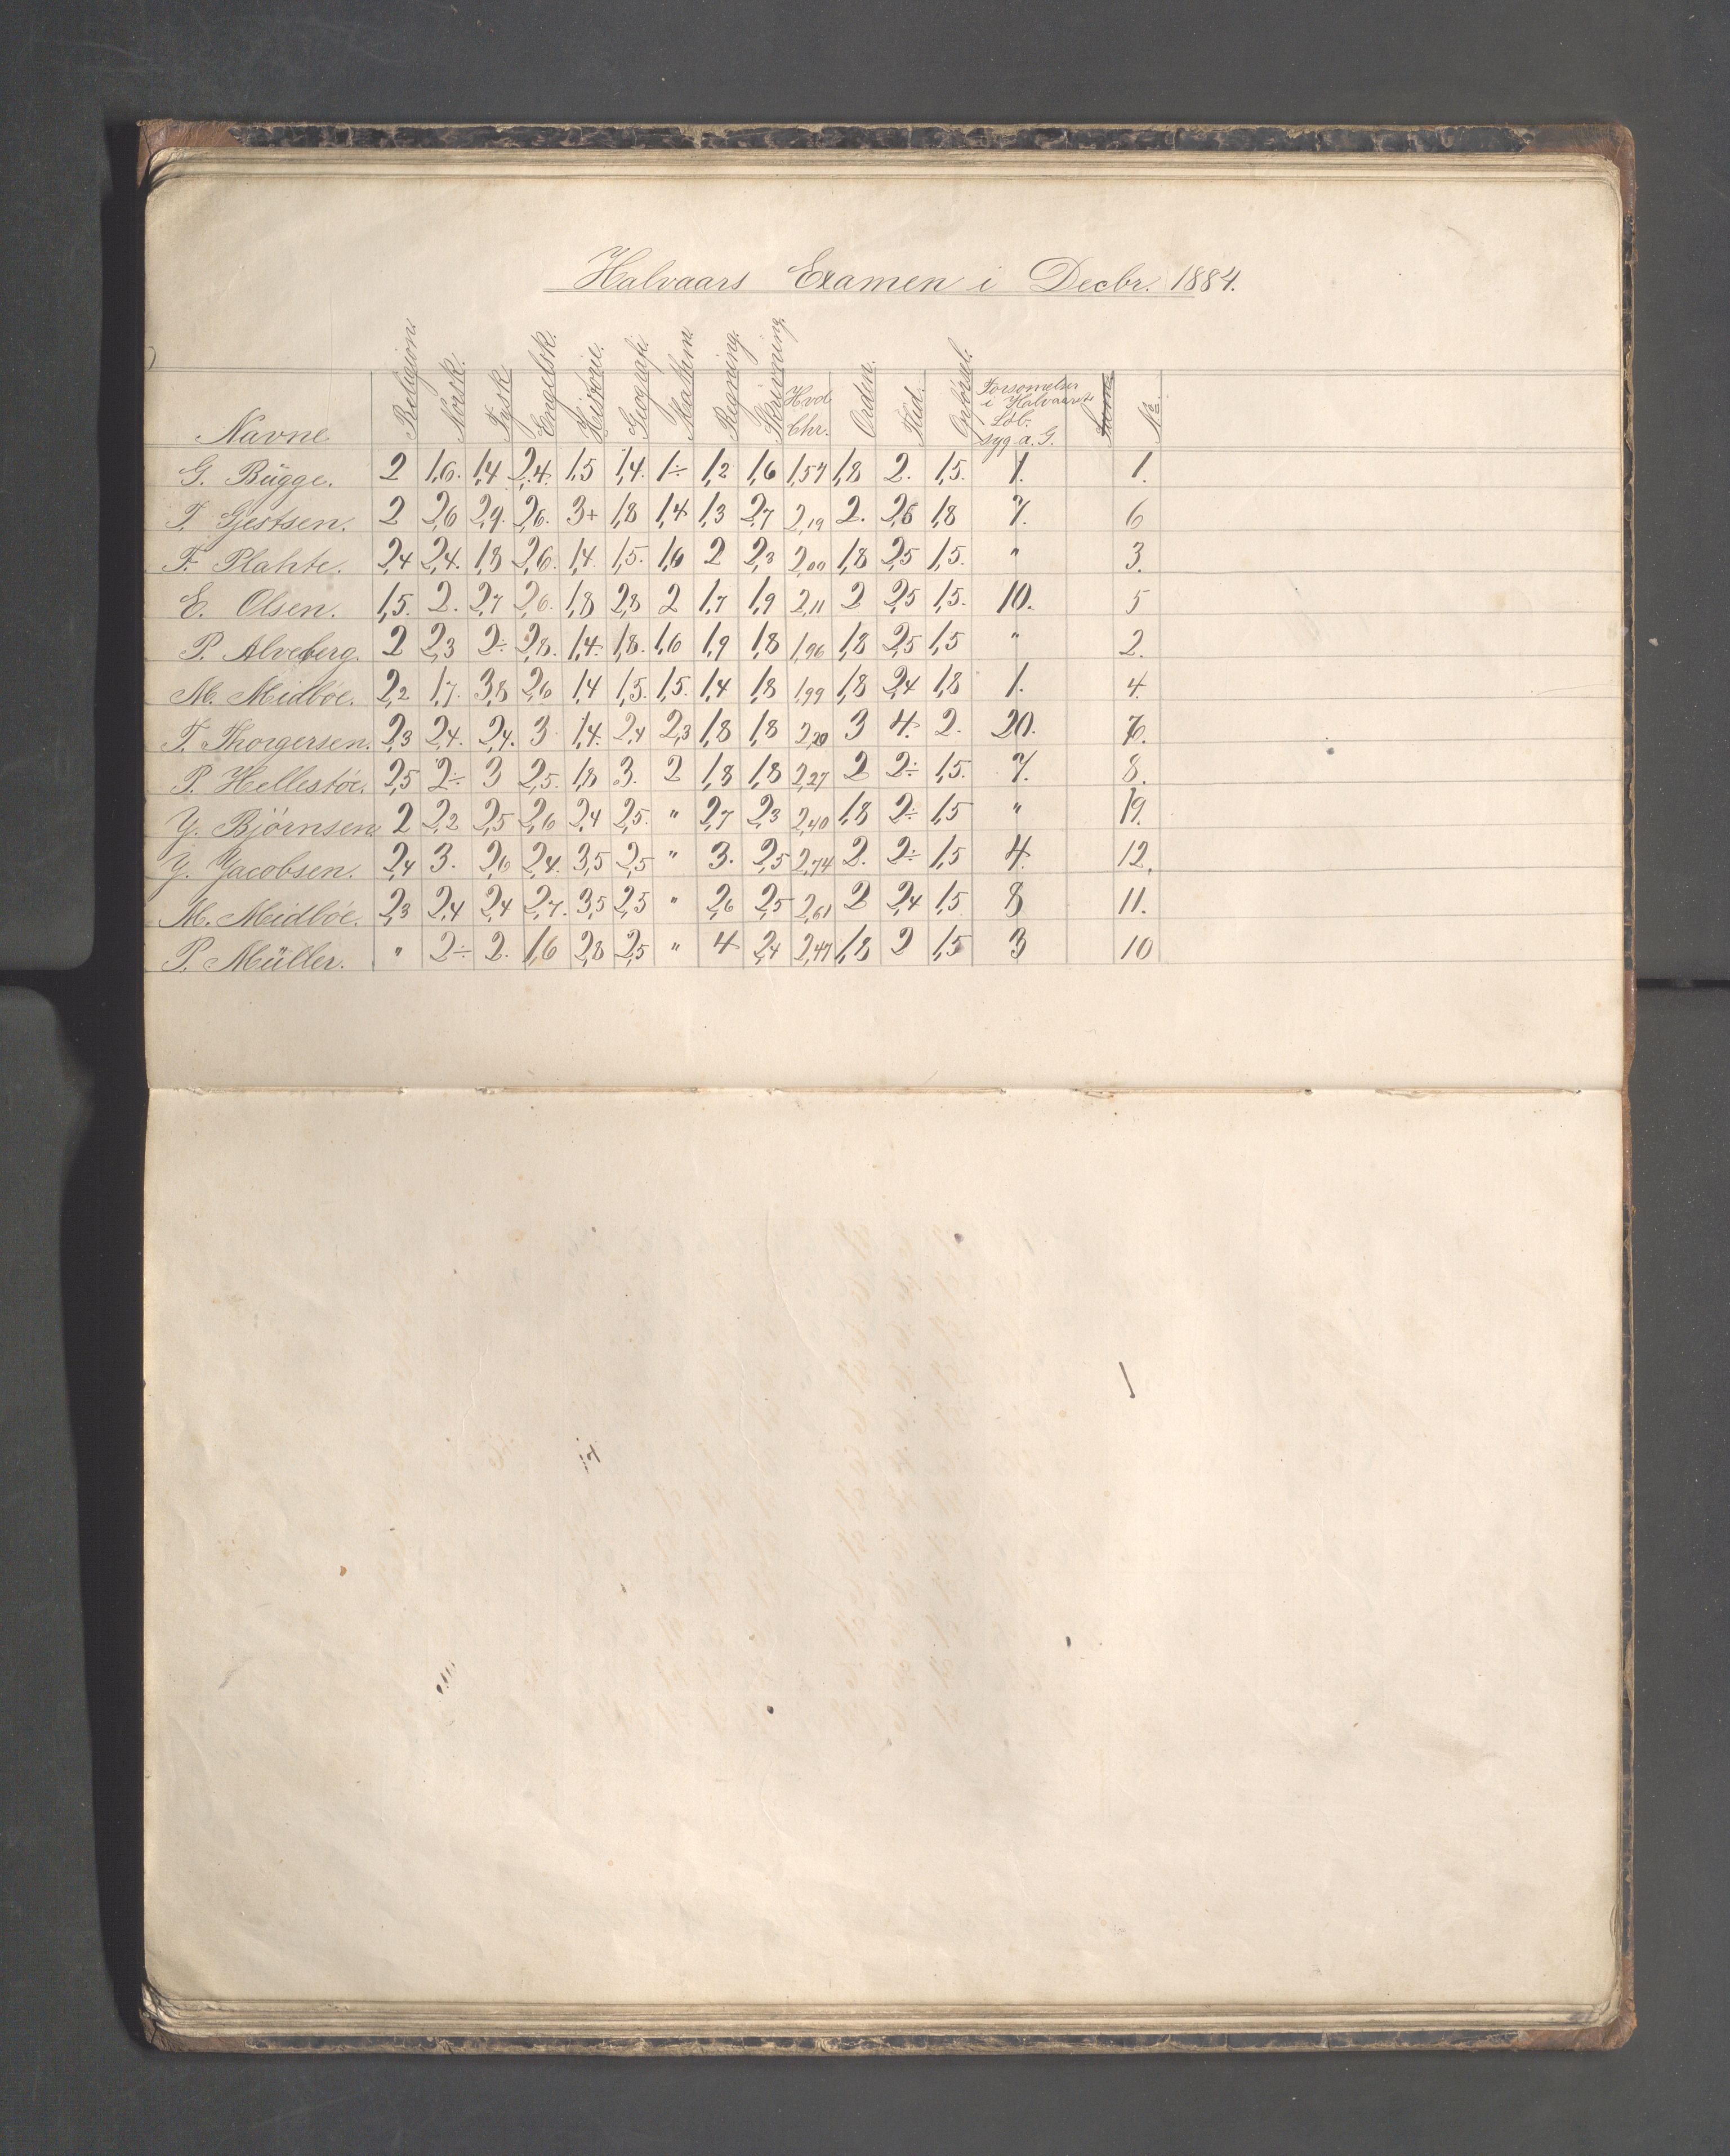 Halvaars Examen i Decbr. 1884.
Navne Religion. Norsk. Tysk Engelsk. Historie. Geografi. Mathem. Regning. Skrivning. Hvd. Chr. Orden. Flid. Opførsel. Forsømelser i Halvaarets Løb. syg. a. G. No.
G. Bügge. 2 1,6. 1,4 2,4. 1,5 1,4. 1÷ 1,2 1,6 1,57 1,8 2. 1,5. 1. 1.
T. Gjestsen. 2 2,6 2,9. 2,6. 3+ 1,8 1,4 1,3 2,7 2,19 2. 2,5 1,8 7. 6
F. Plahte. 2,4 2,4. 1,8 2,6. 1,4. 1,5. 1,6 2 2,3 2,00 1,8 2,5 1,5. " 3.
E. Olsen. 1,5. 2. 2,7 2,6. 1,8 2,8 2 1,7 1,9 2,11 2 2,5 1,5. 10. 5
P. Alveberg. 2 2,3 2÷ 2,8. 1,4. 1,8. 1,6 1,9 1,8 1,96 1,8 2,5 1,5 " 2.
M. Midbøe. 2,2 1,7. 3,8 2,6 1,4 1,5. 1,5. 1,4 1,8 1,99 1,8 2,4 1,8 1. 4.
T. Thorgersen. 2,3 2,4. 2,4. 3 1,4. 2,4 2,3 1,8 1,8 2,20 3 4. 2. 20. 7.
P. Hellestøe. 2,5 2÷ 3 2,5. 1,8 3. 2 1,8 1,8 2,27 2 2÷ 1,5. 7. 8.
Y. Bjørnsen 2 2,2 2,5 2,6 2,4 2,5. " 2,7 2,3 2,40 1,8 2÷ 1,5 " 19.
Y. Jacobsen. 2,4 3. 2,6 2,4. 3,5 2,5 " 3. 2,5 2,74 2. 2÷ 1,5 4. 12.
M. Midbøe. 2,3 2,4 2,4 2,7. 3,5 2,5 " 2,6 2,5 2,61 2 2,4 1,5 8 11.
P. Müller. " 2÷ 2. 1,6 2,8 2,5 " 4 2,4 2,47 1,8 2 1,5 3 10